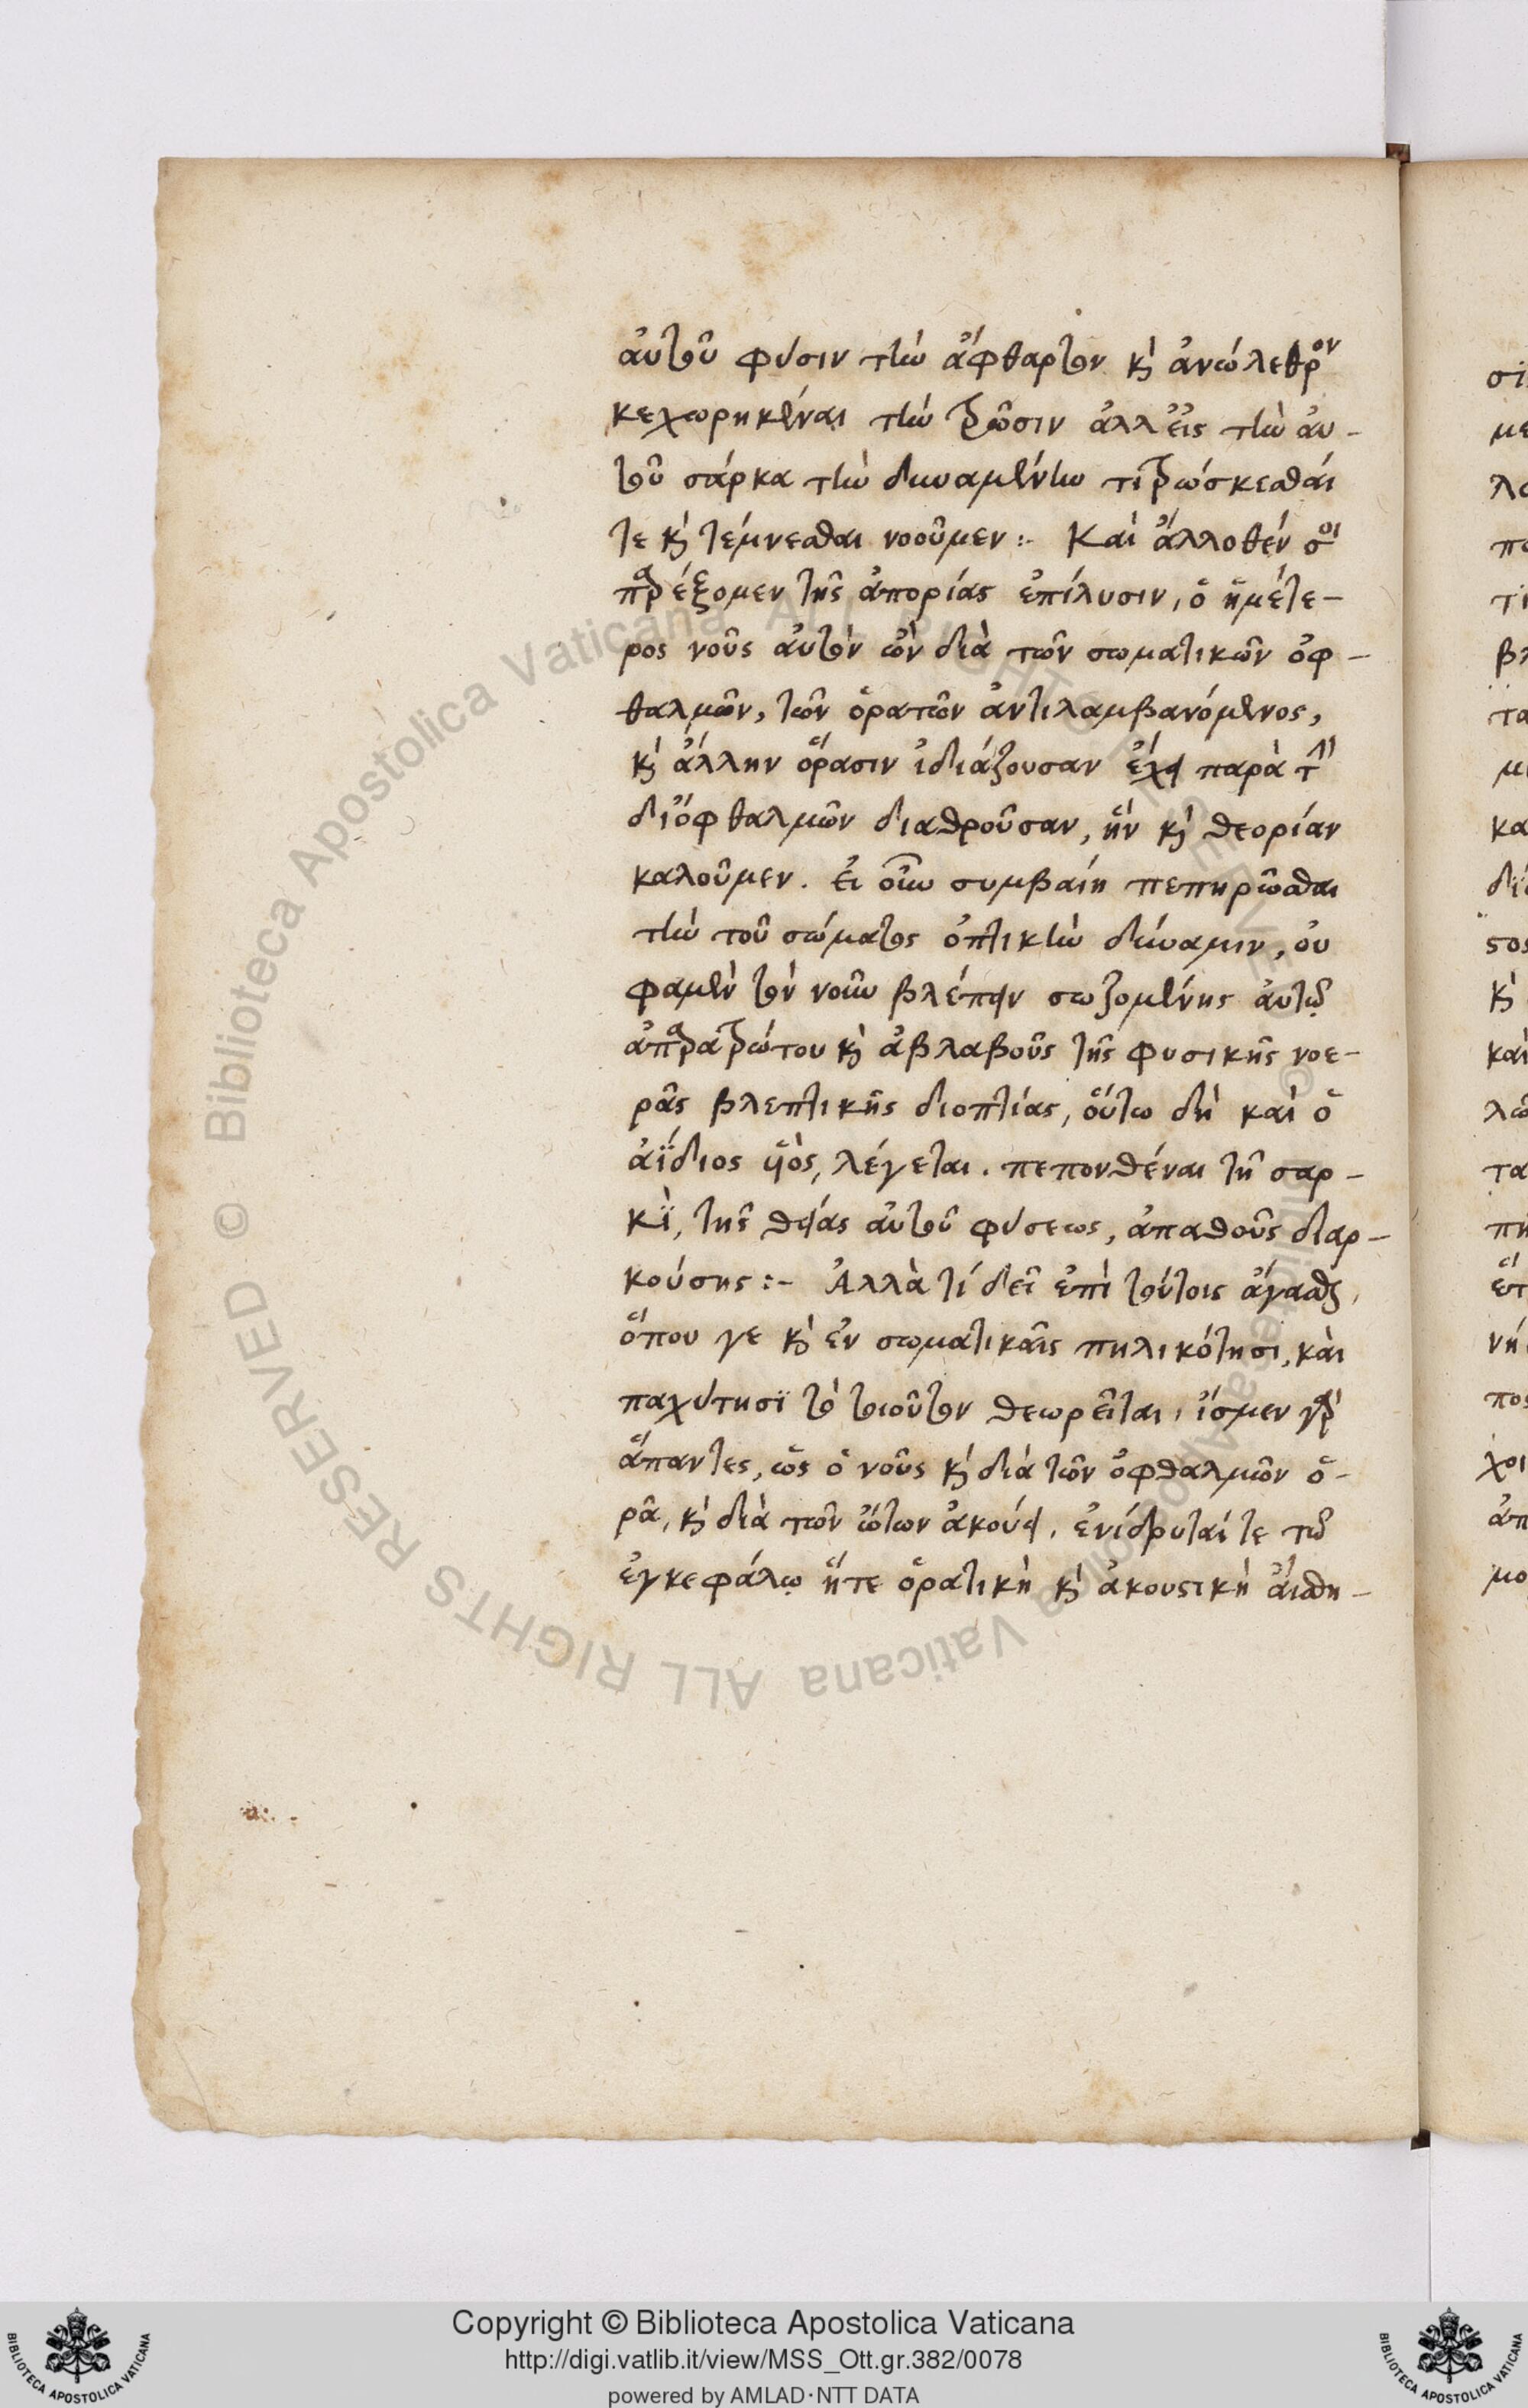 αὐτοῦ φύσιν τὴν ἄφθαρτον κὶ ἀνώλεθρον
κεχωρηκέναι τὴν τρῶσιν ἀλλ εἰς τὴν αὐ-
τοῦ σάρκα τὴν δυναμένην τιτρώσκεσθαί
τε κὶ τέμνεσθαι νοοῦμεν :- Καὶ ἄλλοθέν σοι
παρέξομεν τῆς ἀπορίας ἐπίλυσιν, ὁ ἡμέτε-
ρος νοῦς αὐτὸν ὢν διὰ τῶν σωματικῶν ὀφ-
θαλμῶν, τῶν ὁρατῶν ἀντιλαμβανόμενος,
κὶ ἄλλην ὅρασιν ἰδιάζουσαν ἔχει παρὰ τὴν
δι ὀφθαλμῶν διαθροῦσαν, ἣν κὶ θεορίαν
καλοῦμεν. εἰ οὖν συμβαίη πεπηρῶσθαι
τὴν τοῦ σώματος ὀπτικὴν δύναμιν, οὐ
φαμὲν τὸν νοῦν βλέπειν σωζομένης αὐτῷ
ἀπαρατρώτου κὶ ἀβλαβοῦς τῆς φυσικῆς νοε-
ρᾶς βλεπτικῆς διοπτίας, οὕτω δὴ καὶ ὁ
ἀΐδιος υἱὸς, λέγεται. πεπονθέναι τῇ σαρ-
κὶ, τῆς θείας αὐτοῦ φύσεως, ἀπαθοῦς διαρ-
κούσης :- Ἀλλὰ τί δεῖ ἐπὶ τούτοις ἄγασθαι,
ὅπου γε κὶ ἐν σωματικαῖς πηλικότησι, καὶ
παχύτησϊ τὸ τοιοῦτον θεωρεῖται, ἴσμεν γὰρ
ἅπαντες, ὡς ὁ νοῦς κὶ διὰ τῶν ὀφθαλμῶν ὁ-
ρᾶ, κὶ διὰ τῶν ὤτων ἀκούει, ἐνίδρυταί τε τῷ
ἐγκεφάλῳ ἥτε ὁρατικὴ κὶ ἀκουστικὴ αἴσθη-
Copyright © Biblioteca Apostolica Vaticana
http://digi.vatlib.it/view/MSS_Ott.gr.382/0078
powered by AMLAD·NTT DATA